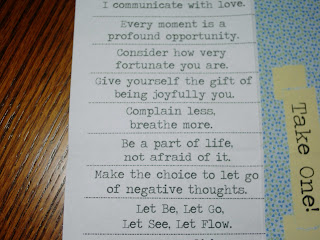 I communicate with love.
Every moment is a
profound opportunity.
Consider how very
fortunate you are.
Give yourself the gift of
being joyfully you.
Complain less,
breathe more.
Be a part of life,
not afraid of it.
Make the choice to let go
of negative thoughts.
Let Be, Let Go,
Let See, Let Flow.
Take One!